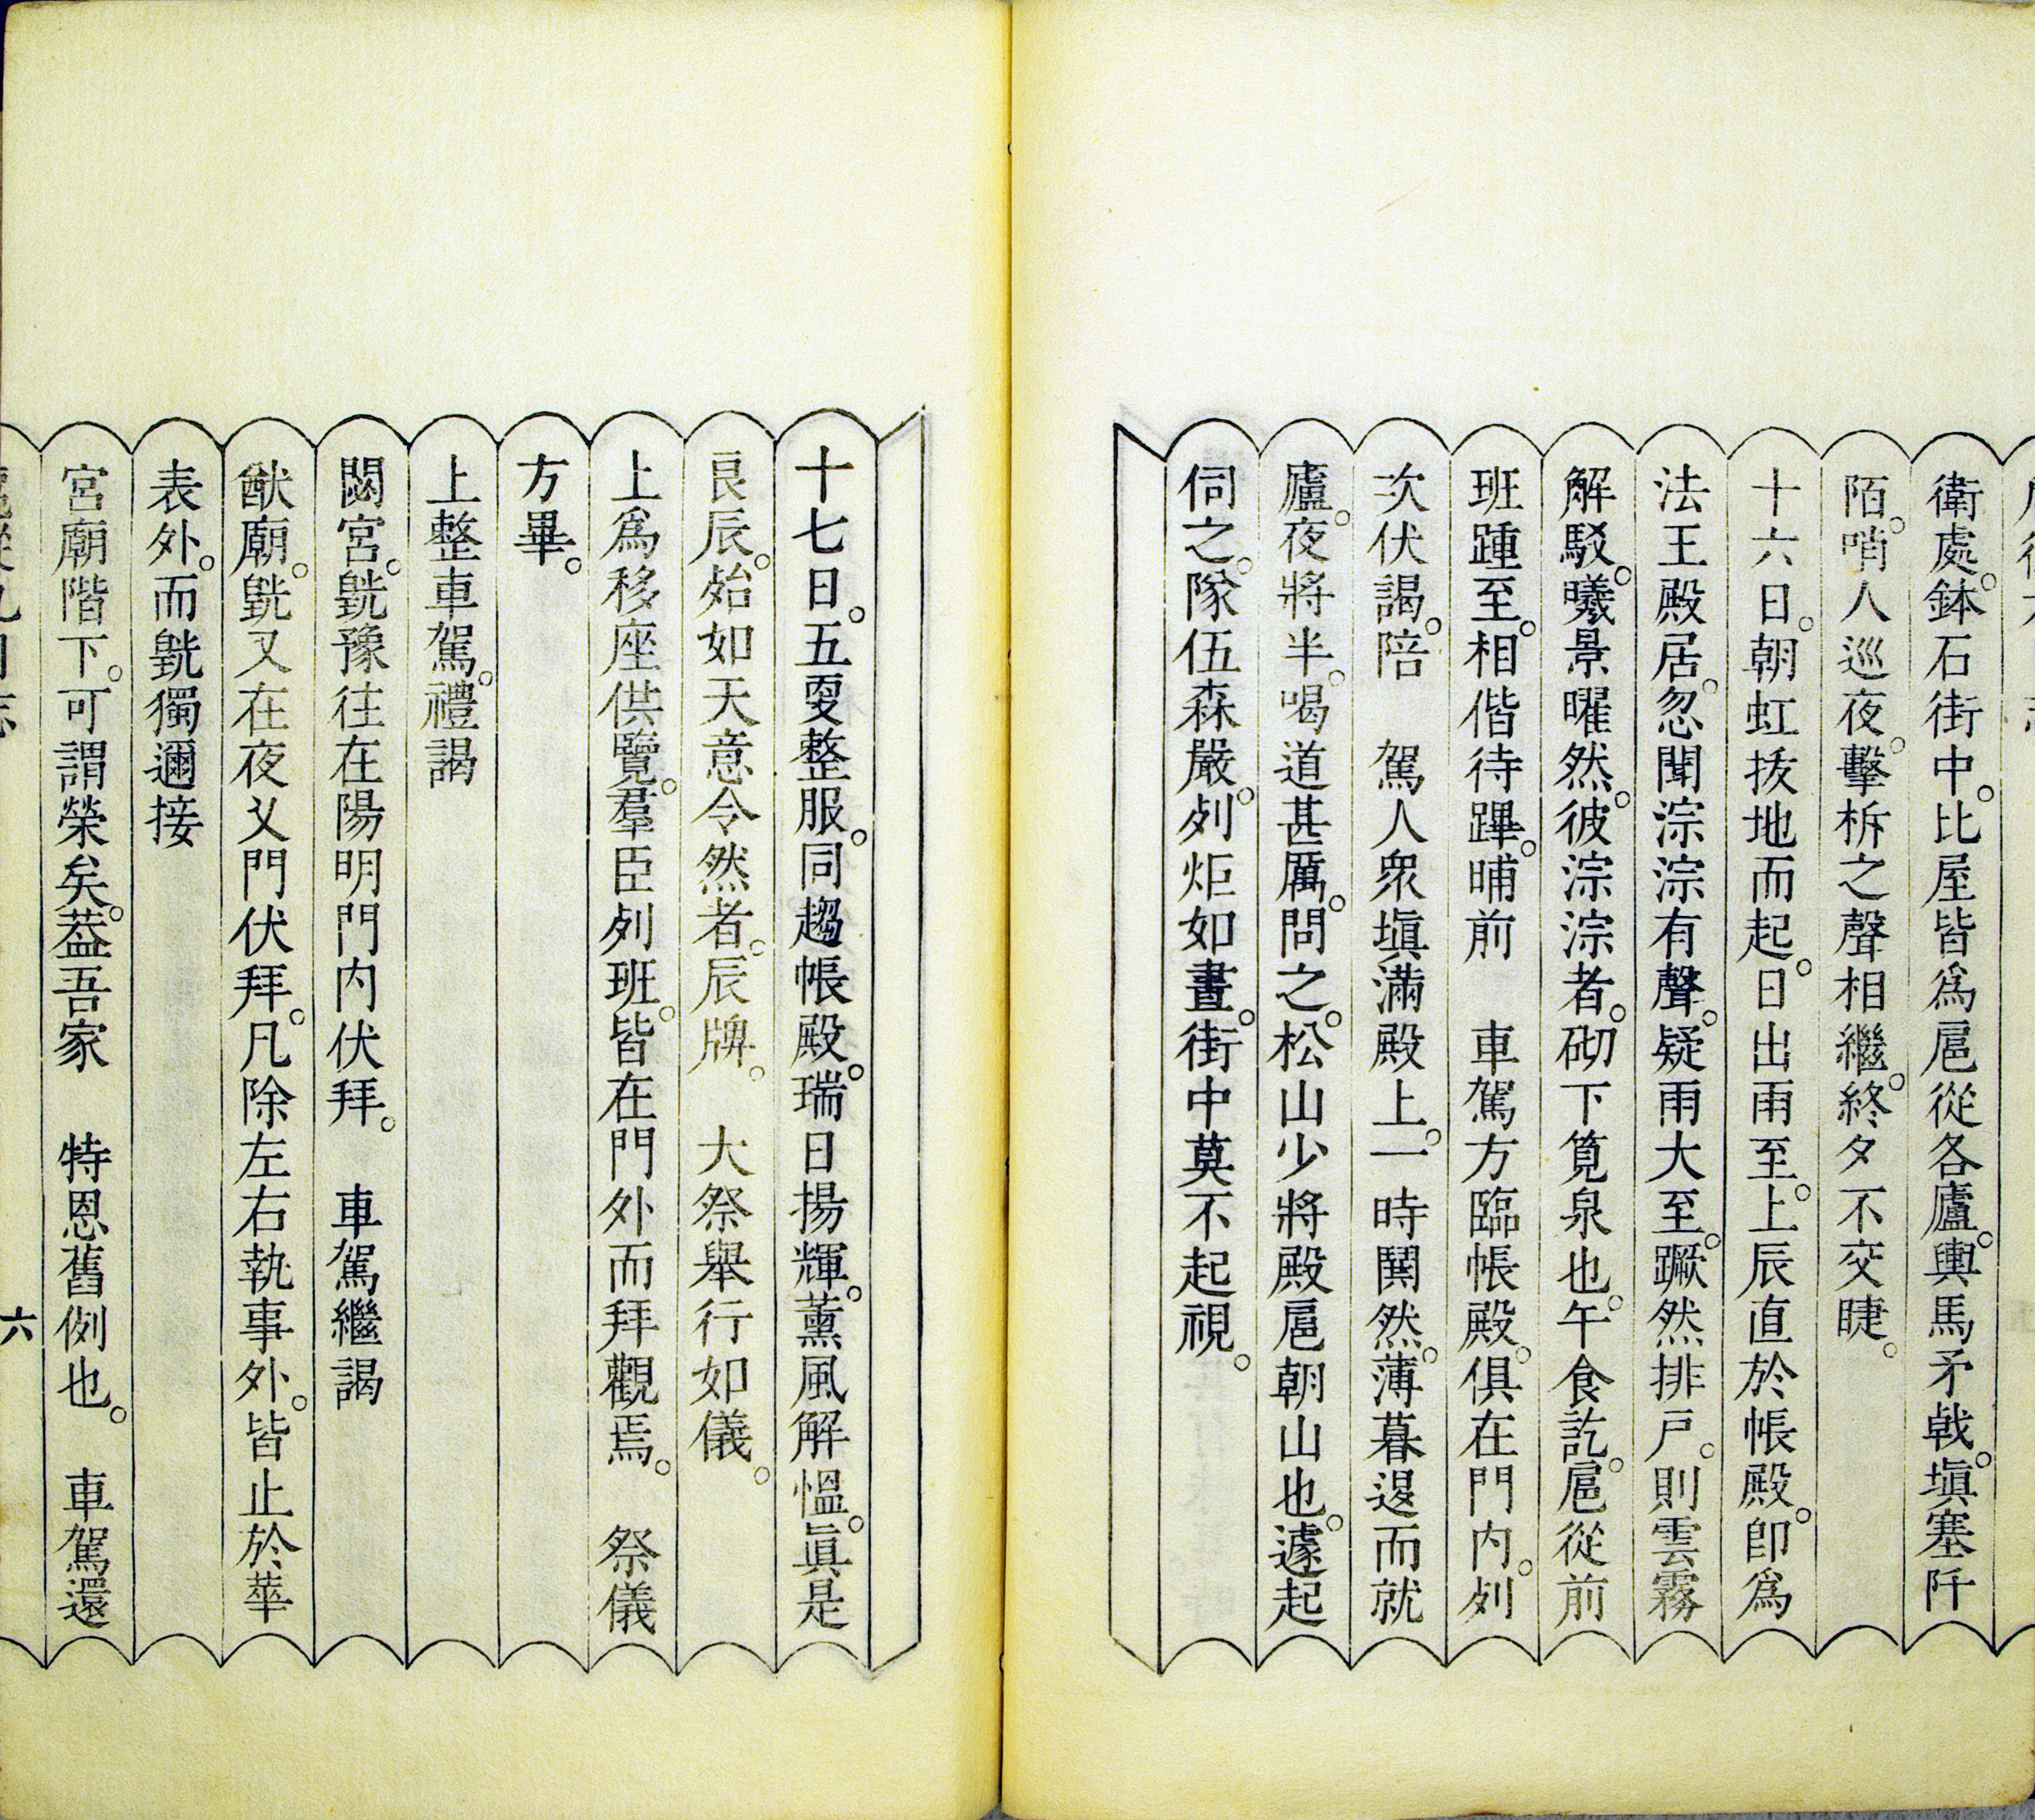 衛處。鉢石街中。比屋皆爲扈從各廬。輿馬矛戟。塡塞阡
陌。哨人巡夜。擊柝之聲相繼。終夕不交睫。
十六日。朝虹拔地而起。日出雨至。上辰直於帳殿。卽爲
法王殿居。忽聞淙淙有聲。疑雨大至。蹶然排戶。則雲霧
解駁。曦景曜然。彼淙淙者。砌下筧泉也。午食訖。扈從前
班踵至。相偕待蹕。晡前　車駕方臨帳殿。俱在門內。列
次伏謁。陪　駕人衆塡滿殿上。一時鬨然。薄暮退而就
廬。夜將半。喝道甚厲。問之。松山少將殿扈朝山也。遽起
伺之。隊伍森嚴。列炬如晝。街中莫不起視。
十七日。五更整服。同趨帳殿。瑞日揚輝。薰風解慍。眞是
良辰。殆如天意令然者。辰牌。　大祭舉行如儀。
上爲移座供覽。羣臣列班。皆在門外而拜觀焉。　祭儀
方畢。
上整車駕。禮謁
閟宮。毿豫往在陽明門內伏拜。　車駕繼謁
猷廟。毿又在夜叉門伏拜。凡除左右執事外。皆止於華
表外。而毿獨邇接
宮廟階下。可謂榮矣。葢吾家　特恩舊例也。　車駕還
六